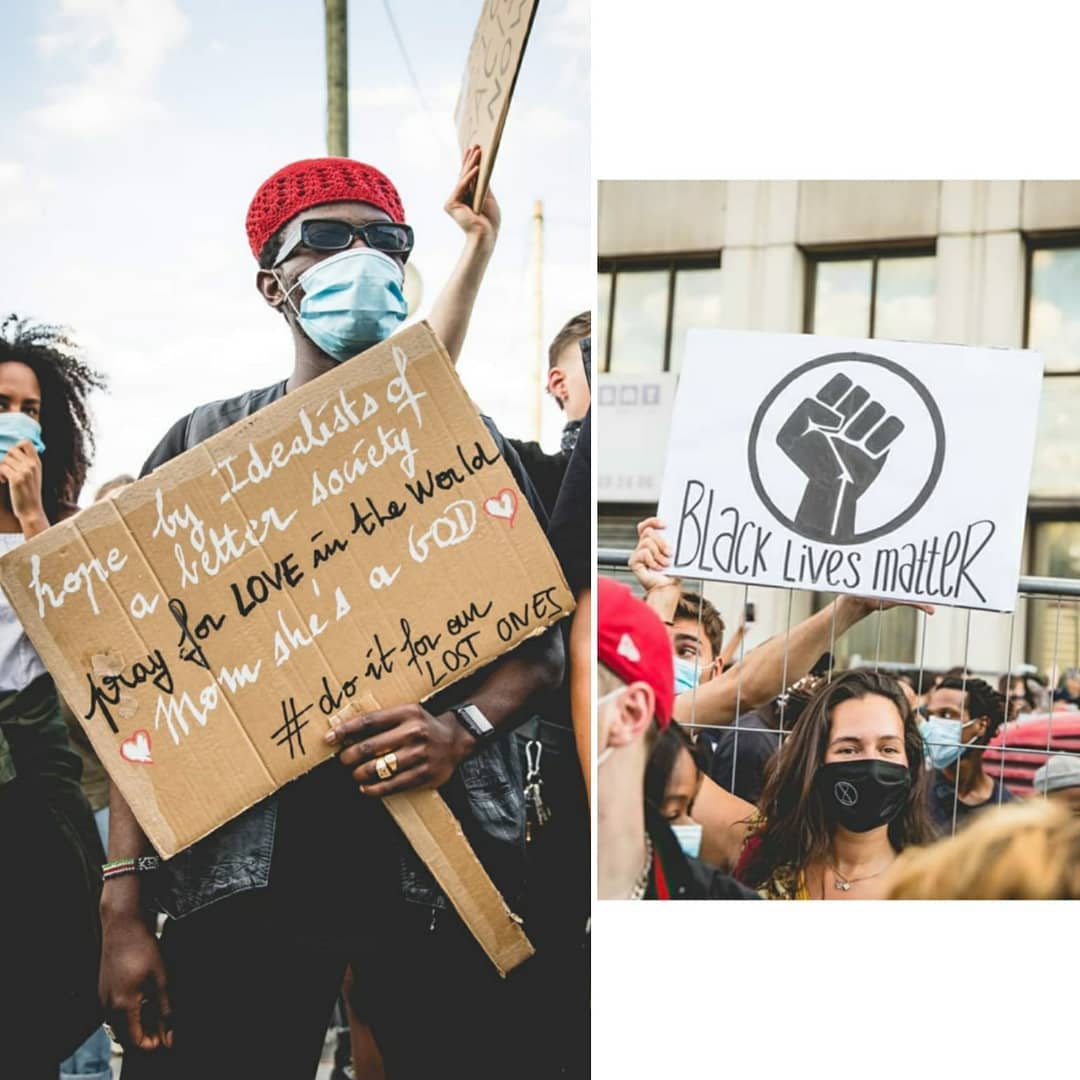 hope by Idealists of
a better society
pray for LOVE in the World
Mom she's a GOD
#do it for our
LOST ONES
Black Lives matter